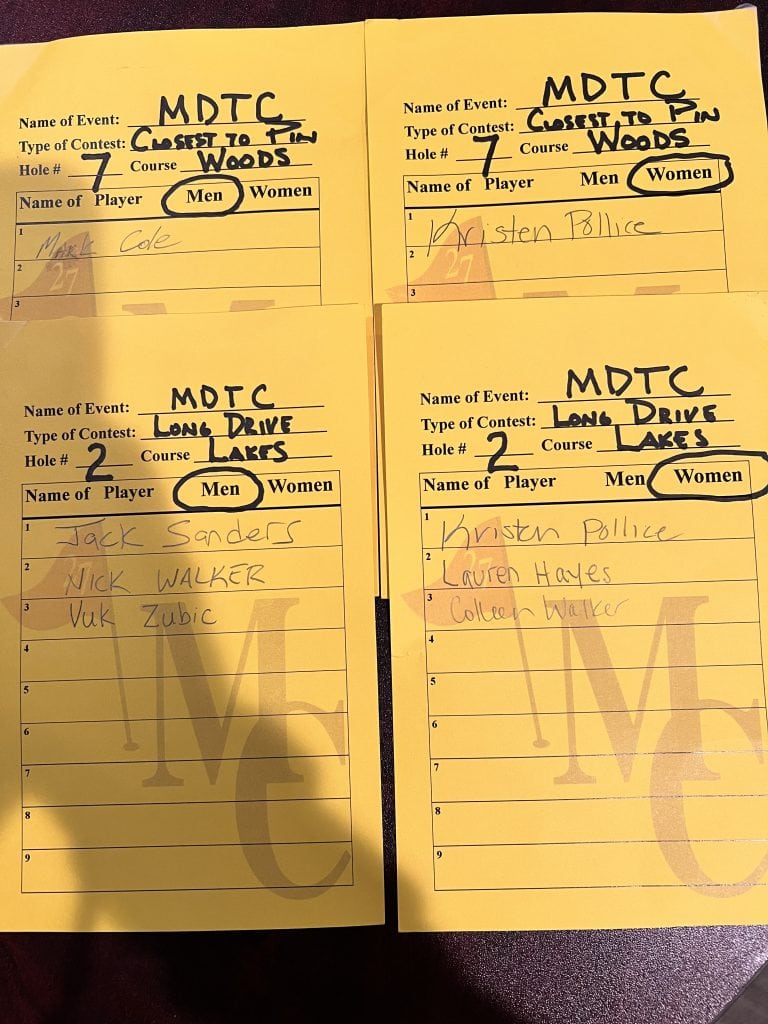 Name of Event: MDTC
Type of Contest: CLOSEST TO PIN
Hole # 7 Course WOODS
Name of Player Men Women
1 Mark Cole
2
3
27
Name of Event: MDTC
Type of Contest: CLOSEST TO PIN
Hole # 7 Course WOODS
Name of Player Men Women
1 Kristen Pollice
2
3
27
Name of Event: MDTC
Type of Contest: LONG DRIVE
Hole # 2 Course LAKES
Name of Player Men Women
1 Jack Sanders
2 NICK WALKER
3 Vuk Zubic
4
5
6
7
8
9
27
MC
Name of Event: MDTC
Type of Contest: LONG DRIVE
Hole # 2 Course LAKES
Name of Player Men Women
1 Kristen Pollice
2 Lauren Hayes
3 Colleen Walker
4
5
6
7
8
9
27
MC